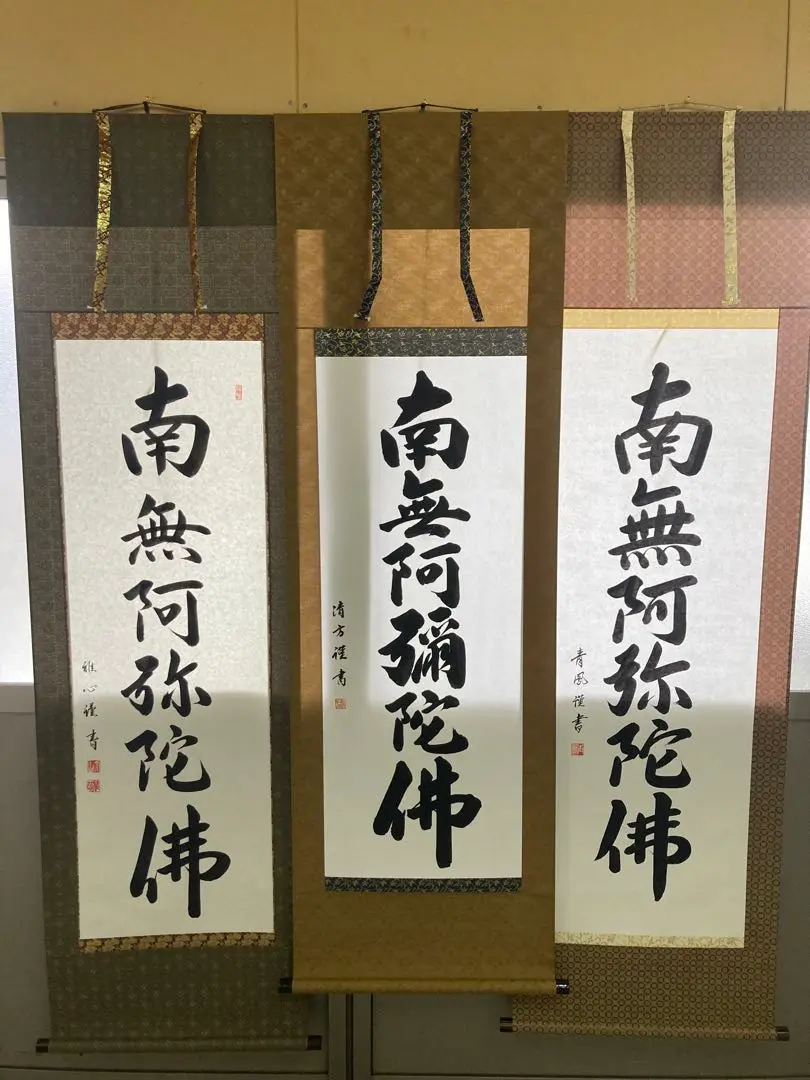 南無阿弥陀佛
雅心謹書
南無阿彌陀佛
清方謹書
南無阿弥陀佛
青風謹書